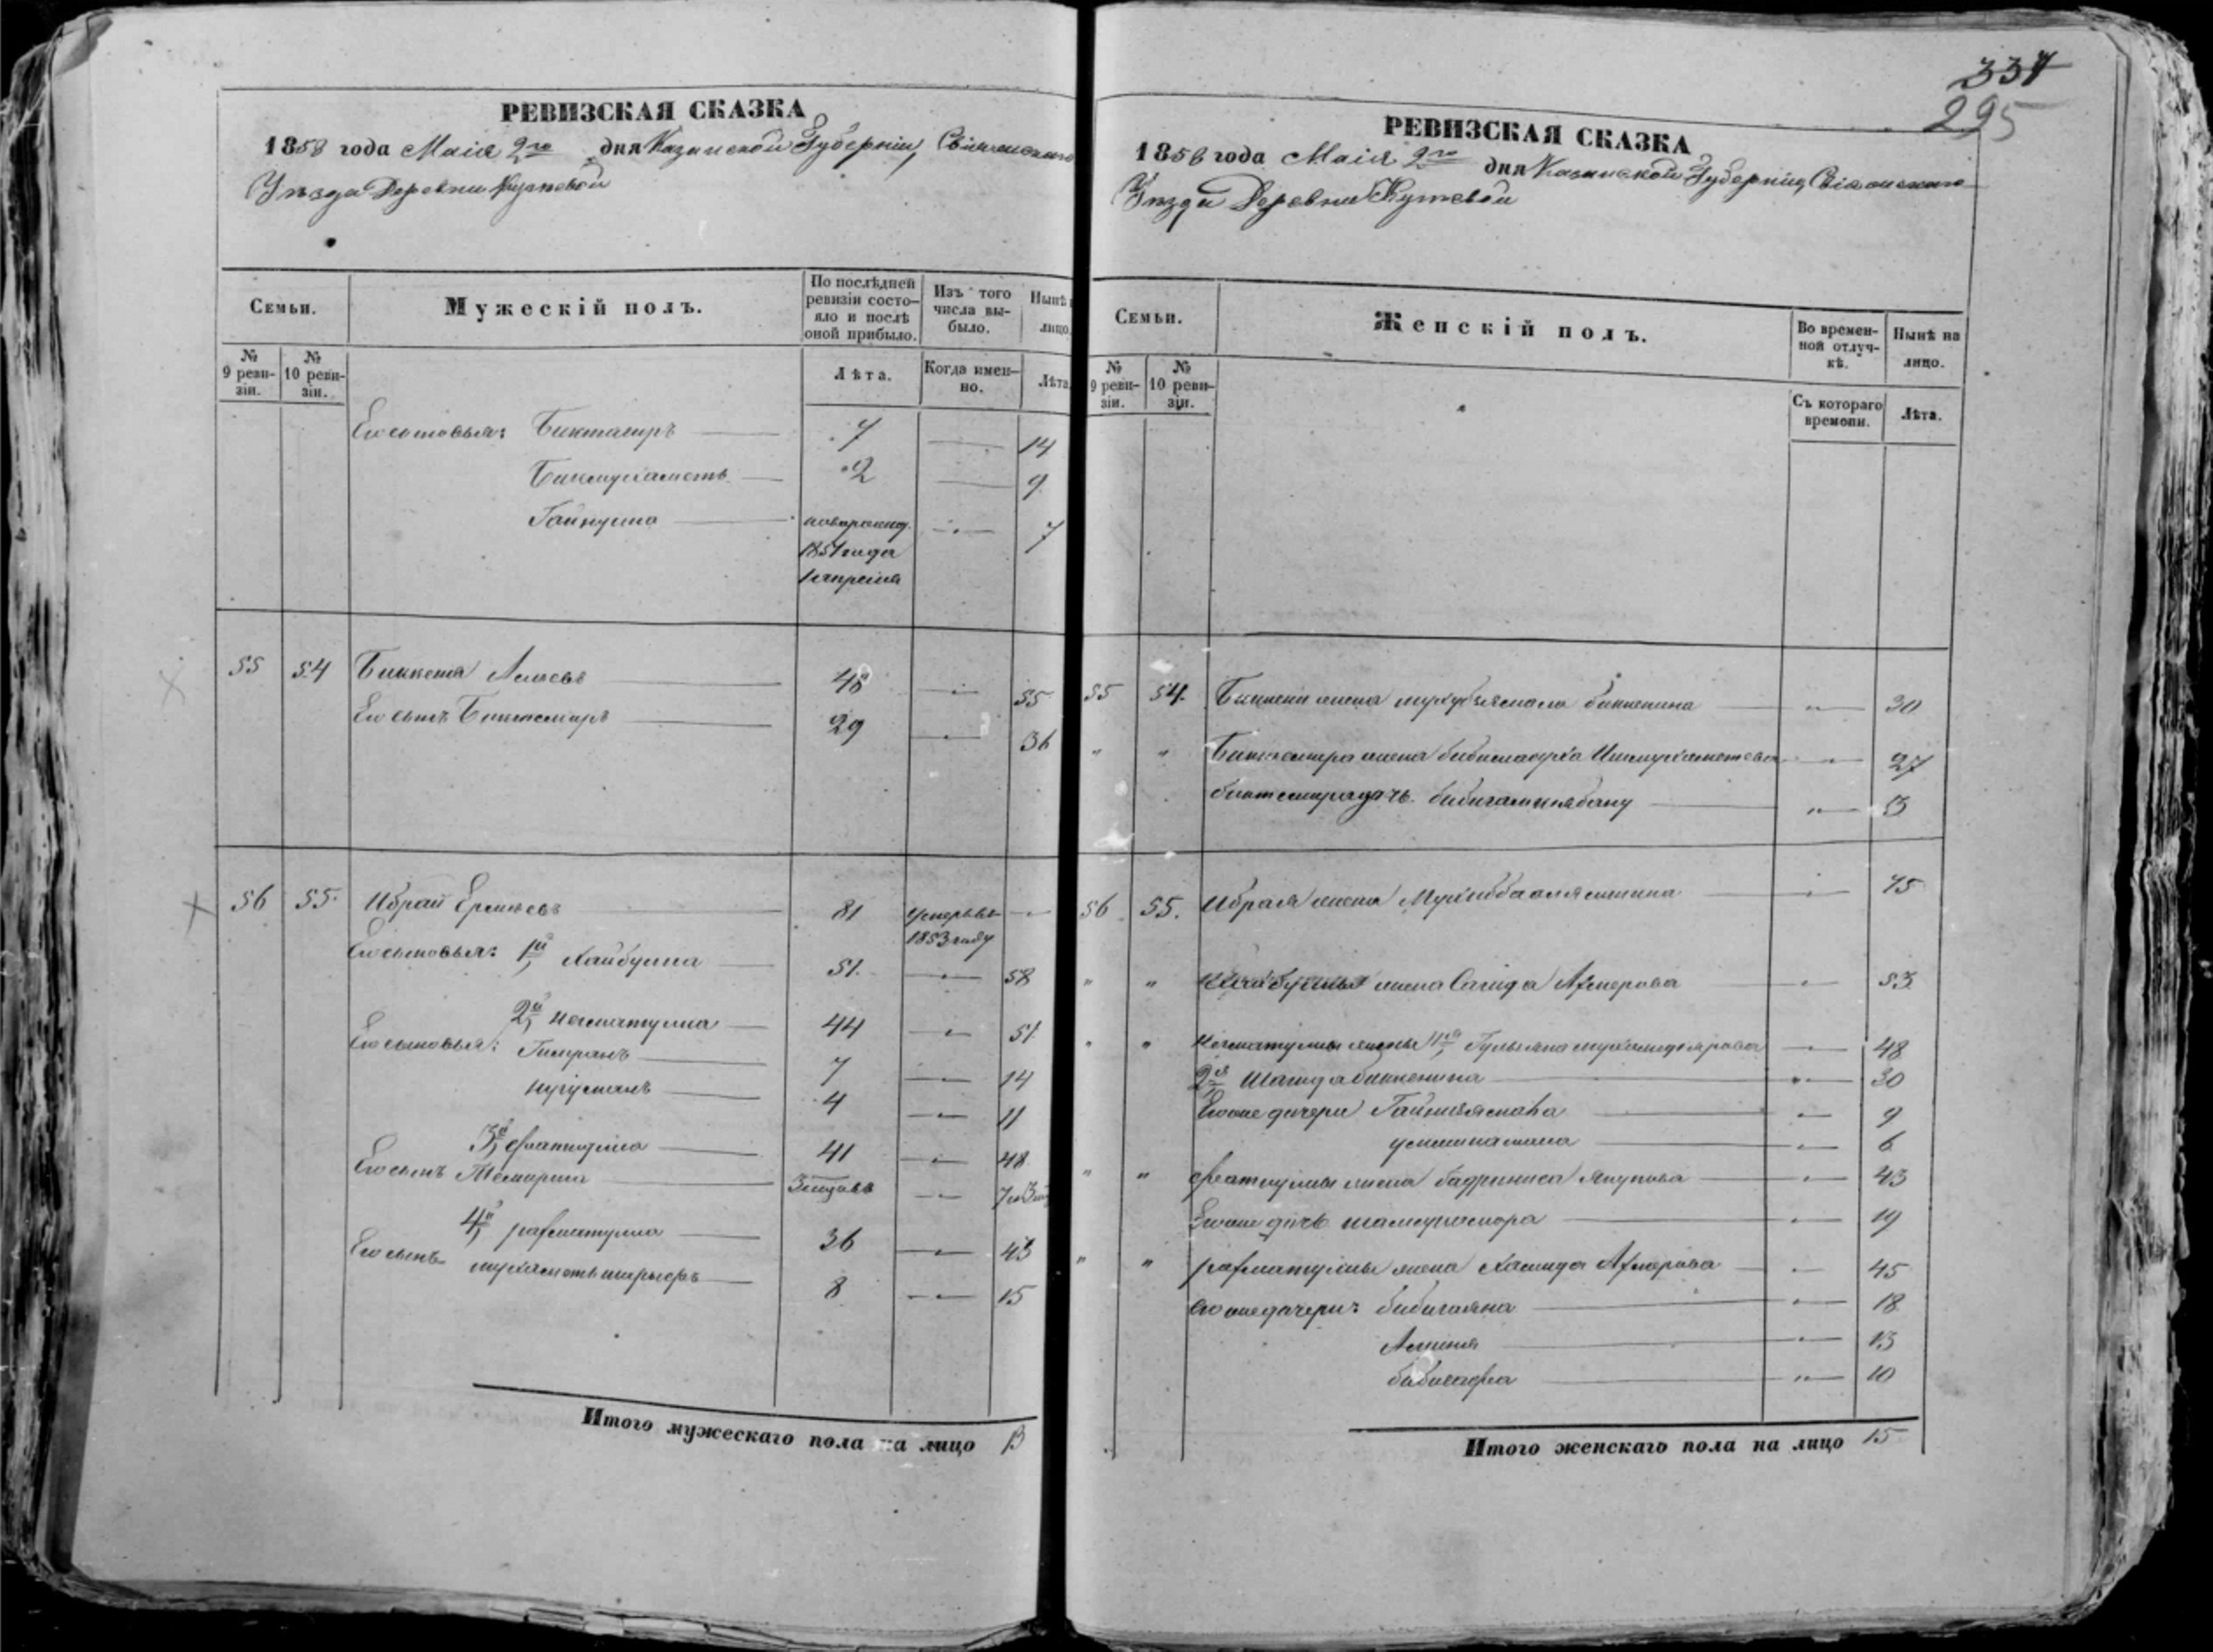 РЕВИЗСКАЯ СКАЗКА
1858 года Маія 2го дня Казанской Губерніи, Свіяжскаго
Уѣзда Деревни Кутевой
Семьи.
Мужескій полъ.
По послѣдней ревизіи состо-яло и послѣ оной прибыло.
Изъ того числа вы-было.
Нынѣ
лицо.
№ 9 реви-зіи.
№ 10 реви-зіи.
Лѣта.
Когда имен-но.
Лѣта
Его сыновья: Биктагиръ 7 14
Бикмухаметъ 2 9
Гайнулла новорожд. 7
1851 года
1 апреля
55 54 Биккеня 48 55
Его сынъ Биктемиръ 29 36
56 55. Ибрай Ермяевъ 81 умеръ въ
1853 году
Его сыновья: 1й Хайбулла 51. 58
2й Негматулла 44 51
Его сыновья: Гимранъ 7 14
Нугуманъ 4 11
3й Фатхулла 41 48
Его сынъ 3 мѣсяцовъ
4й рахматулла 36 43
Его сынъ мухаметшарыфъ 8 15
Итого мужескаго пола на лицо 13
334
295
РЕВИЗСКАЯ СКАЗКА
1858 года Маія 2го дня Казанской Губерніи, Свіяжскаго
Уѣзда Деревни Кутевой
Семьи.
Женскій полъ.
Во времен-ной отлуч-кѣ.
Нынѣ на лицо.
№ 9 реви-зіи.
№ 10 реви-зіи.
Съ котораго времени.
Лѣта.
55 54. Биккени жена 30
" " Биктемира жена Ишмухаметева 27
биктемира дочь 13
56 55. Ибрая жена 75
" " Хайбуллы жена Сагида 53
" " Негматуллы жены 1я 48
2я Шагида биккенина 30
Его же дочери 9
6
" " Фатхуллы жена бадриниса Якупова 43
Его же дочь 19
" " рахматуллы жена Хамида 45
его же дочери: бибигаяна 18
Аминя 13
10
Итого женскаго пола на лицо 15